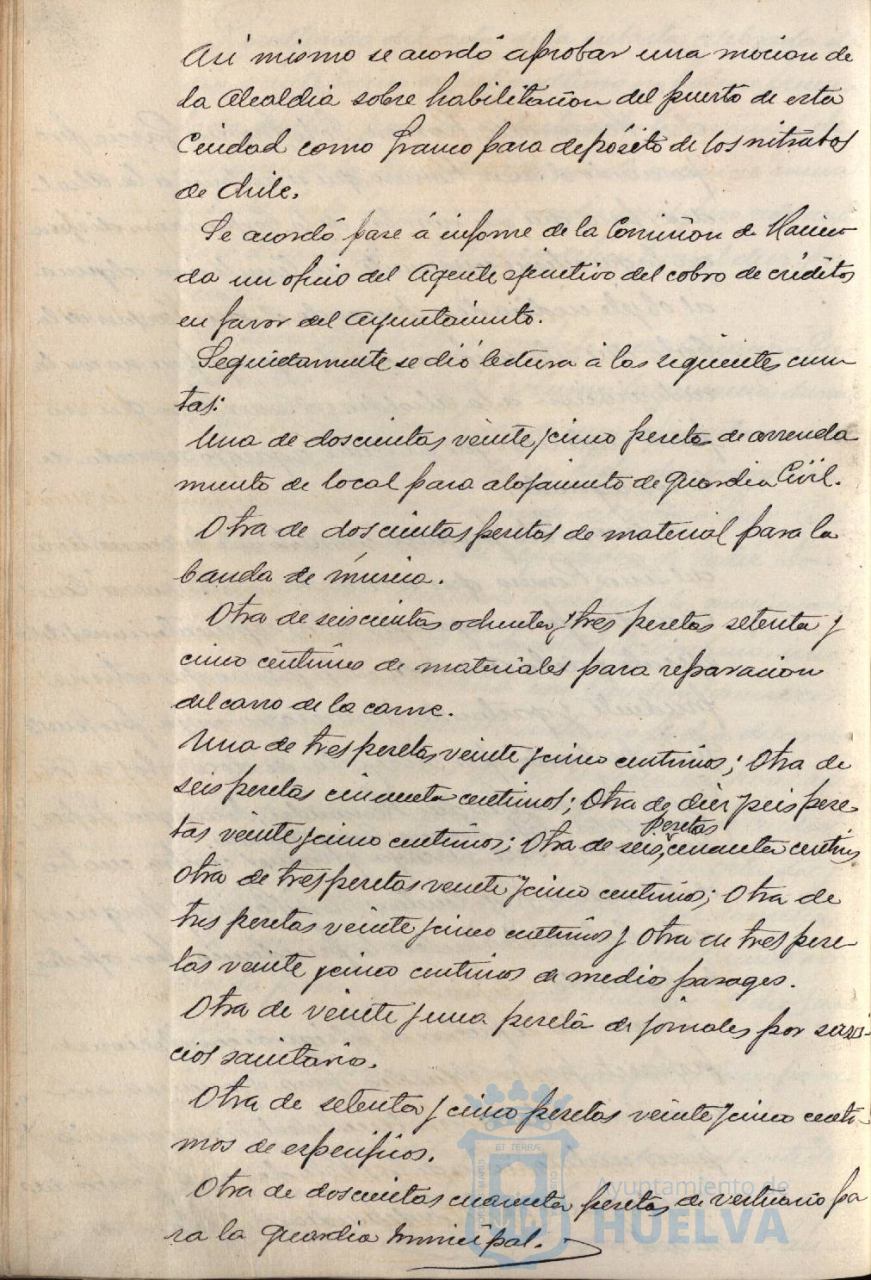 Asi mismo se acordó aprobar una mocion de
la Alcaldia sobre habilitacion del puerto de esta
Ciudad como franco para depósito de los nitratos
de Chile.
Se acordó pase á informe de la Comision de Hacien
da un oficio del Agente ejecutivo del cobro de créditos
en favor del Ayuntamiento.
Seguidamente se dió lectura á las siguientes cuen
tas:
Una de doscientas veinte y cinco pesetas de arrenda
miento de local para alojamiento de Guardia Civil.
Otra de doscientas pesetas de material para la
banda de música.
Otra de seiscientas ochenta y tres pesetas setenta y
cinco centimos de materiales para reparacion
del carro de la carne.
Una de tres pesetas veinte y cinco centimos; Otra de
seis pesetas cincuenta centimos; Otra de diez y seis pese-
tas veinte y cinco centimos; Otra de seis pesetas cincuenta centims
Otra de tres pesetas veinte y cinco centimos; Otra de
tres pesetas veinte y cinco centimos y Otra de tres pese-
tas veinte y cinco centimos de medios pasages.
Otra de veinte y una peseta de jornales por servi-
cios sanitario.
Otra de setenta y cinco pesetas veinte y cinco centi-
mos de especificos.
Otra de doscientas cuarenta pesetas de vestuario pa
ra la guardia municipal.
ET TERRÆ
Ayuntamiento de
HUELVA